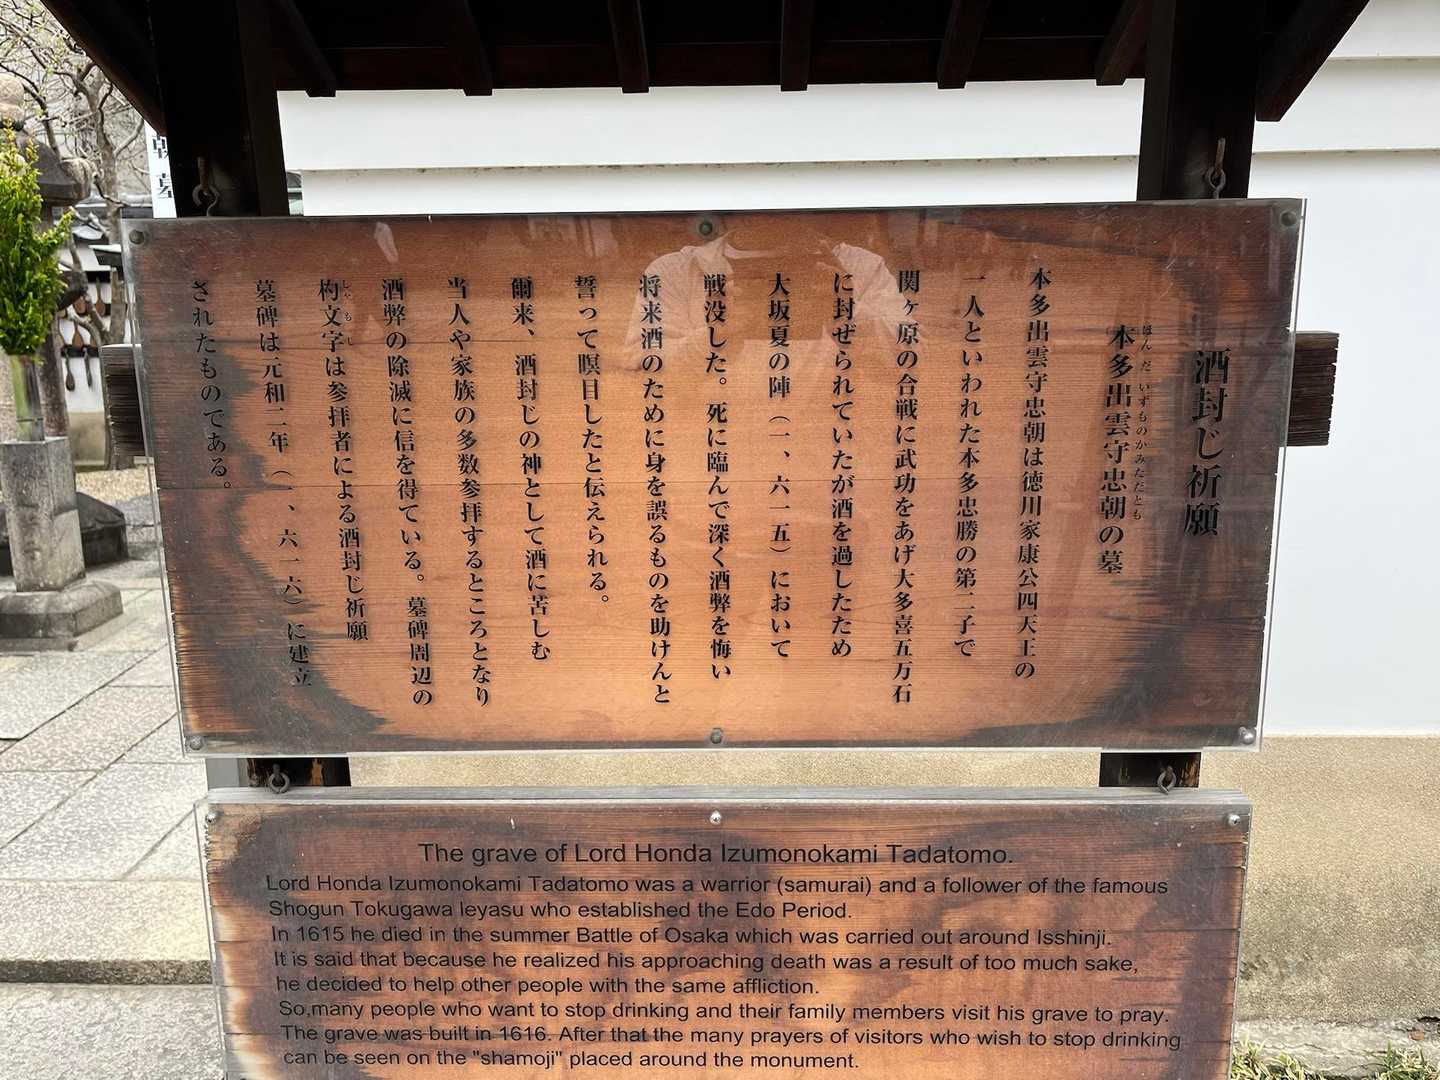 酒封じ祈願
本多出雲守忠朝の墓
ほんだいずものかみただとも
本多出雲守忠朝は徳川家康公四天王の
一人といわれた本多忠勝の第二子で
関ヶ原の合戦に武功をあげ大多喜五万石
に封ぜられていたが酒を過したため
大坂夏の陣（一、六一五）において
戦没した。死に臨んで深く酒弊を悔い
将来酒のために身を誤るものを助けんと
誓って瞑目したと伝えられる。
爾来、酒封じの神として酒に苦しむ
当人や家族の多数参拝するところとなり
酒弊の除滅に信を得ている。墓碑周辺の
杓文字は参拝者による酒封じ祈願
しゃもじ
墓碑は元和二年（一、六一六）に建立
されたものである。
The grave of Lord Honda Izumonokami Tadatomo.
Lord Honda Izumonokami Tadatomo was a warrior (samurai) and a follower of the famous
Shogun Tokugawa Ieyasu who established the Edo Period.
In 1615 he died in the summer Battle of Osaka which was carried out around Isshinji.
It is said that because he realized his approaching death was a result of too much sake,
he decided to help other people with the same affliction.
So,many people who want to stop drinking and their family members visit his grave to pray.
The grave was built in 1616. After that the many prayers of visitors who wish to stop drinking
can be seen on the "shamoji" placed around the monument.